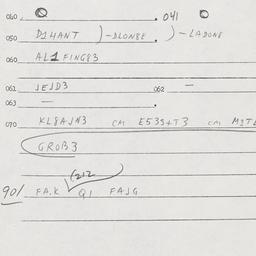 040 041
050 )-BLONDE )-LADONE
060 AL1FINGE3
061 JEJD3 062 —
063 —
070 KL8AJN3 CM E53S+T3 CM
GROB3
(212
901 FA.K Q1 FAJG